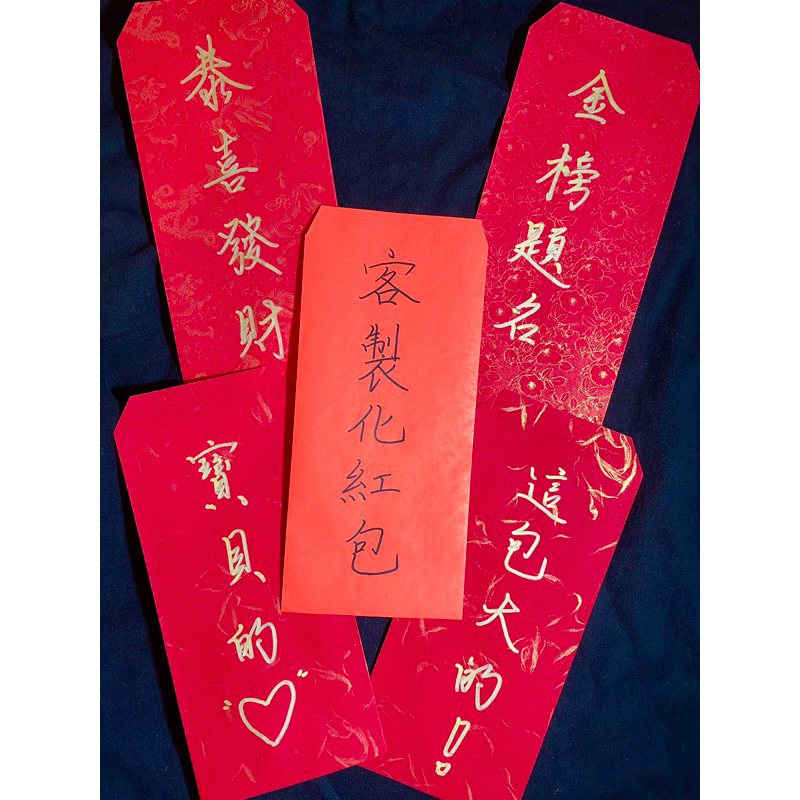 恭喜發財
金榜題名
客製化紅包
寶貝的♡
這包大的!